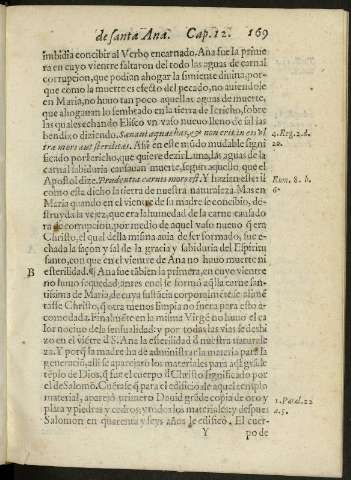 de santa Ana. Cap. 12. 169
imbidia concibir al Verbo encarnado. Ana fue la prime
ra en cuyo vientre faltaron del todo las aguas de carnal
corrupcion, que podian ahogar la simiente divina: por-
que como la muerte es efecto del pecado, no auiendole
en Maria, no huuo tan poco aquellas aguas de muerte,
que ahogauan lo sembrado en la tierra de Iericho, sobre
las quales echando Eliseo vn vaso nueuo lleno de sal las
bendixo diziendo. Sanaui aquas has, & non erit in eis vl
tra mors aut sterilitas. Assi en este mũdo mudable signi
ficado por Iericho, que quiere dezir Luna, las aguas de la
carnal sabiduria causauan muerte, segun aquello que el
Apostol dize. Prudentia carnis mors est. Y hazian esteril
como esta dicho la tierra de nuestra naturaleza. Mas en
Maria quando en el vientre de su madre se concibio, de-
struyda la vejez, que era la humedad de la carne causado
ra de corrupcion, por medio de aquel vaso nueuo q̃ era
Christo, el qual della misma auia de ser formado, fue e-
chada la saçon y sal de la gracia y sabiduria del Espiritu
santo, con que en el vientre de Ana no huuo muerte ni
esterilidad. ¶ Ana fue tãbien la primera, en cuyo vientre
no huuo sequedad: antes en el se formó aq̃lla carne san-
tissima de Maria, de cuya sustãcia corporalmẽte se alimẽ
tasse Christo, q̃ otra menos limpia no fuera para esto a-
comodada. Finalmẽte en la misma Virgẽ no huuo el ca
lor nociuo de la sensualidad: y por todas las vias se deshi
zo en el viẽtre d̃ S. Ana la esterilidad d̃ nuestra naturale
za. Y porq̃ la madre ha de administrar la materia para la
generaciõ, alli se aparejaro los materiales para aq̃l grãde
tẽplo de Dios, q̃ fue el cuerpo d̃ Christo significado por
el de Salomõ. Cuẽtase q̃ para el edificio de aquel templo
material, aparejó primero Dauid grãde copia de oro y
plata y piedras y cedros, y todos los materiales: y despues
Salomon en quarenta y seys años le edificó. El cuer-
Y po de
4. Reg. 2. d.
20.
Rom. 8. b.
6.
B
1. Paral. 22
a. 5.